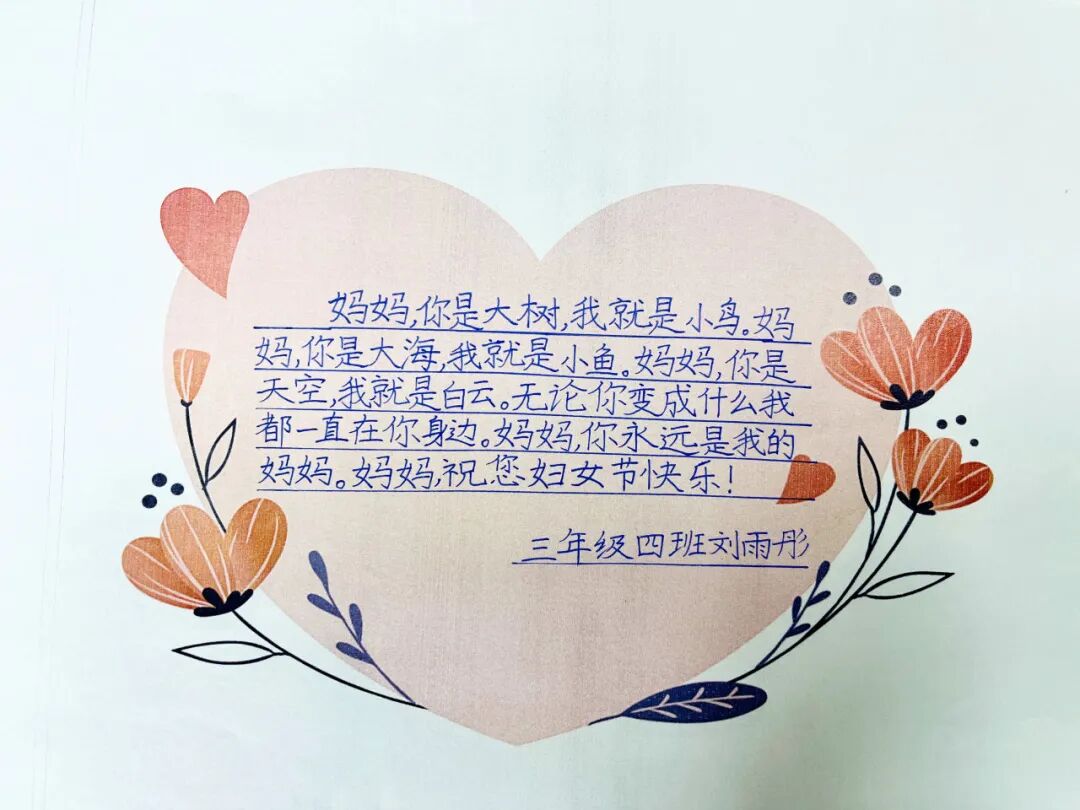 妈妈,你是大树,我就是小鸟。妈
妈,你是大海,我就是小鱼。妈妈,你是
天空,我就是白云。无论你变成什么我
都一直在你身边。妈妈,你永远是我的
妈妈。妈妈,祝您妇女节快乐!
三年级四班刘雨彤